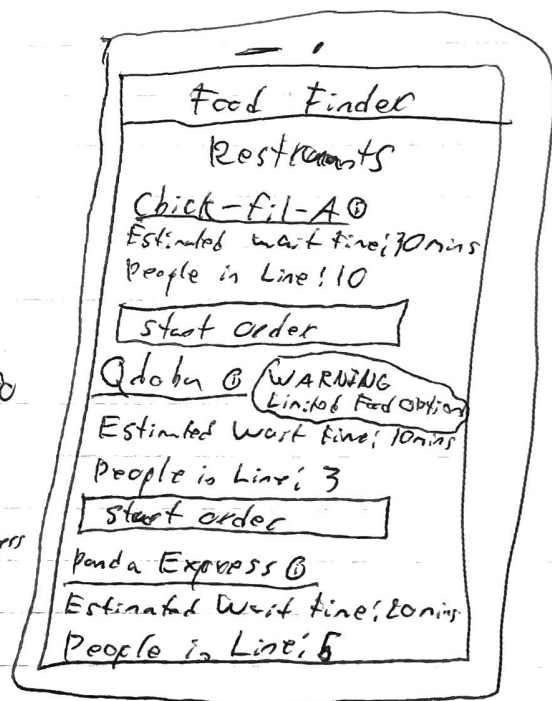 Food Finder
Restraunts
Chick-fil-A ⓘ
Estimated wait time: 30 mins
People in Line: 10
start order
Qdoba ⓘ
WARNING
Limited Food Option
Estimated Wait time: 10 mins
People in Line: 3
start order
Panda Express ⓘ
Estimated Wait time: 20 mins
People in Line: 6